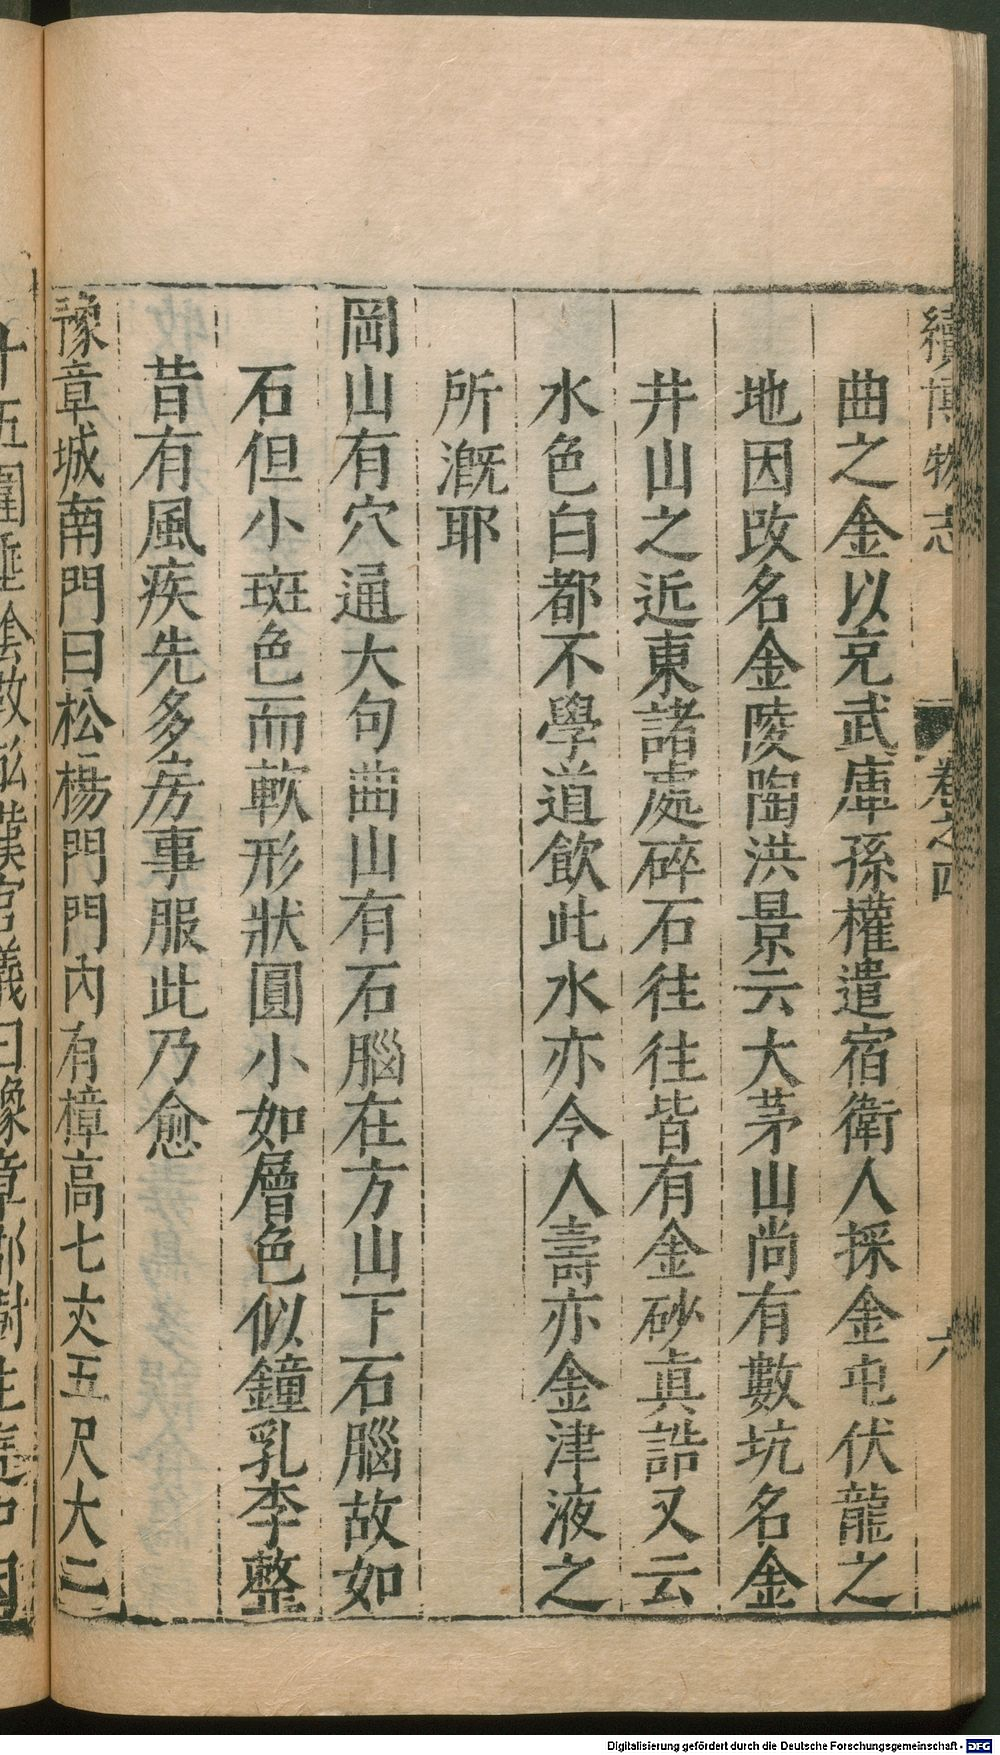 續博物志 卷之四 六
曲之金以充武庫孫權遣宿衛人採金屯伏龍之
地因改名金陵陶洪景云大茅山尚有數坑名金
井山之近東諸處碎石往往皆有金砂眞誥又云
水色白都不學道飲此水亦令人壽亦金津液之
所漑耶
岡山有穴通大句曲山有石腦在方山下石腦故如
石但小斑色而軟形狀圓小如層色似鐘乳李整
昔有風疾先多房事服此乃愈
豫章城南門曰松楊門門內有樟高七丈五尺大二
十五圍垂陰數畝漢官儀曰豫章郡樹生庭中因
Digitalisierung gefördert durch die Deutsche Forschungsgemeinschaft - DFG